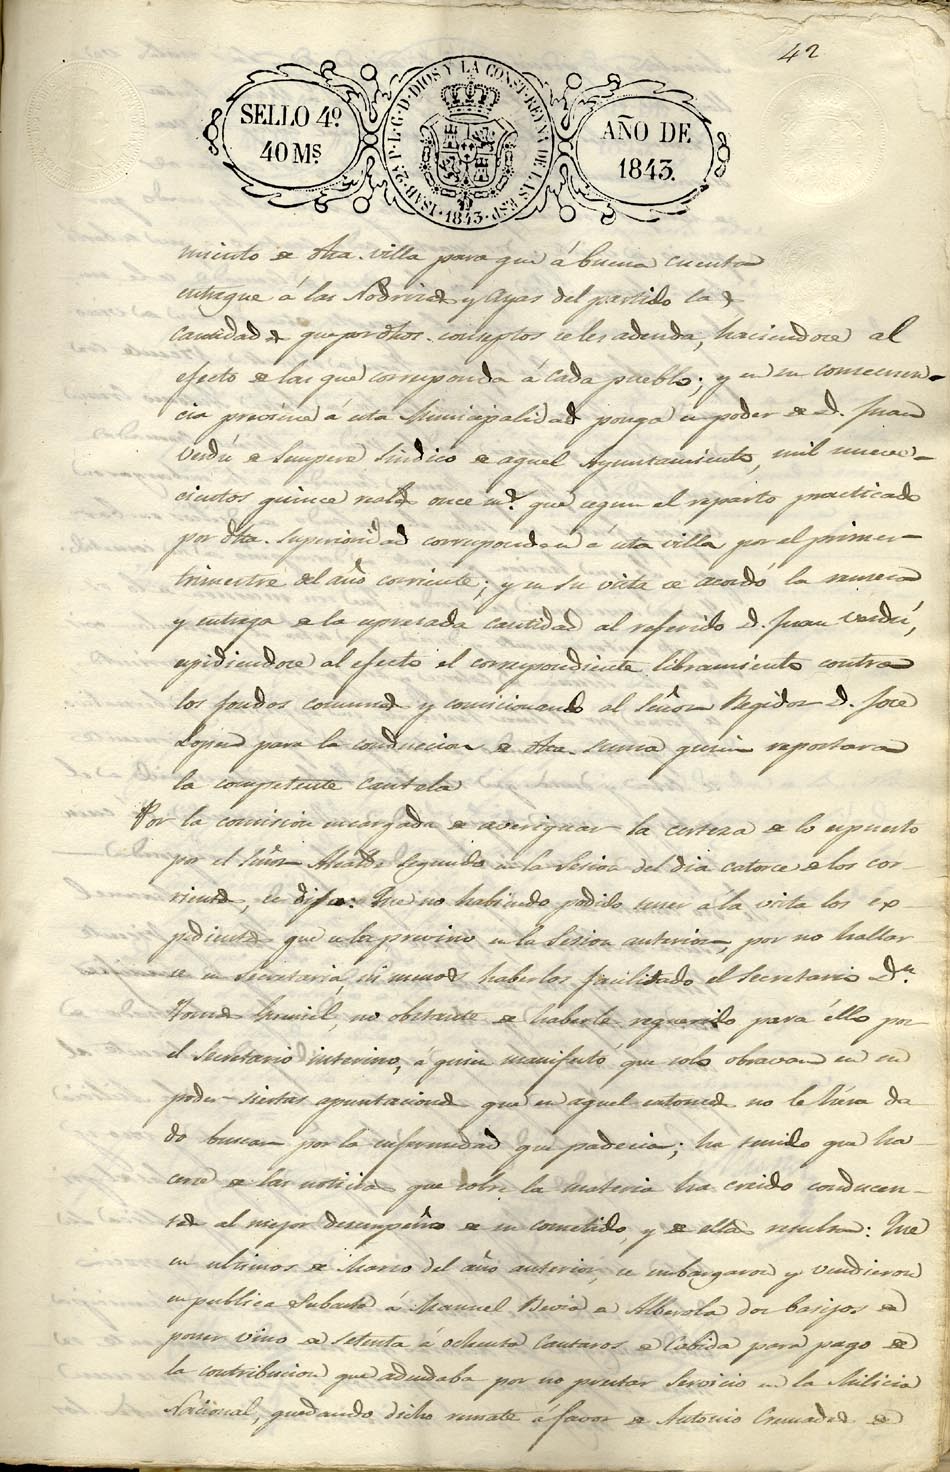 42
SELLO 4º
40 Mˢ
ISAB. 2ª P. L. G. D. DIOS Y LA CONST. REYNA DE LAS ESP.
1843
AÑO DE
1843.
miento de dha. villa para que á buena cuenta
entregue á las Nodrizas y Ayas del partido las
cantidades que por dhos. conceptos se les adeuda, haciendose al
efecto de las que corresponda á cada pueblo; y en su consecuen-
cia previene á esta Municipalidad ponga en poder de D. Juan
Verdú de Sempere Sindico de aquel Ayuntamiento, mil nueve-
cientos quince reales once mˢ. que segun el reparto practicado
por dha. Superioridad corresponden á esta villa por el primer
trimestre del año corriente; y en su vista se acordó la remesa
y entrega de la espresada cantidad al referido D. Juan Verdú,
espidiendose al efecto el correspondiente libramiento contra
los fondos comunes y comisionando al Señor Regidor D. Jose
Lopez para la conduccion de dha. suma quien reportara
la competente cautela
Por la comision encargada de averiguar la certeza de lo espuesto
por el Señor Alcalde Segundo en la Sesion del dia catorce de los cor-
rientes, se dijo: Que no habiendo podido tener á la vista los ex-
pedientes que se les previno en la Sesion anterior, por no hallar
se en Secretaria, ni menos haberlos facilitado el Secretario Dⁿ.
no obstante de haberle requerido para éllo por
el Secretario interino, á quien manifestó que solo obravan en su
poder siertas apuntaciones que en aquel entonces no le hera da
do buscar por la enfermedad que padecia; ha tenido que ha
cerse de las noticias que sobre la materia ha creido conducen-
tes al mejor desempeño de su cometido, y de ellas resulta: Que
en ultimos de Marso del año anterior, se embargaron y vendieron
en publica Subasta á Manuel de Alberola dos basijos de
poner vino de Setenta á ochenta Cantaros de Cabida para pago de
la contribucion que adeudaba por no prestar Servicio en la Milicia
Nacional, quedando dicho remate á favor de Antonio Cremades de